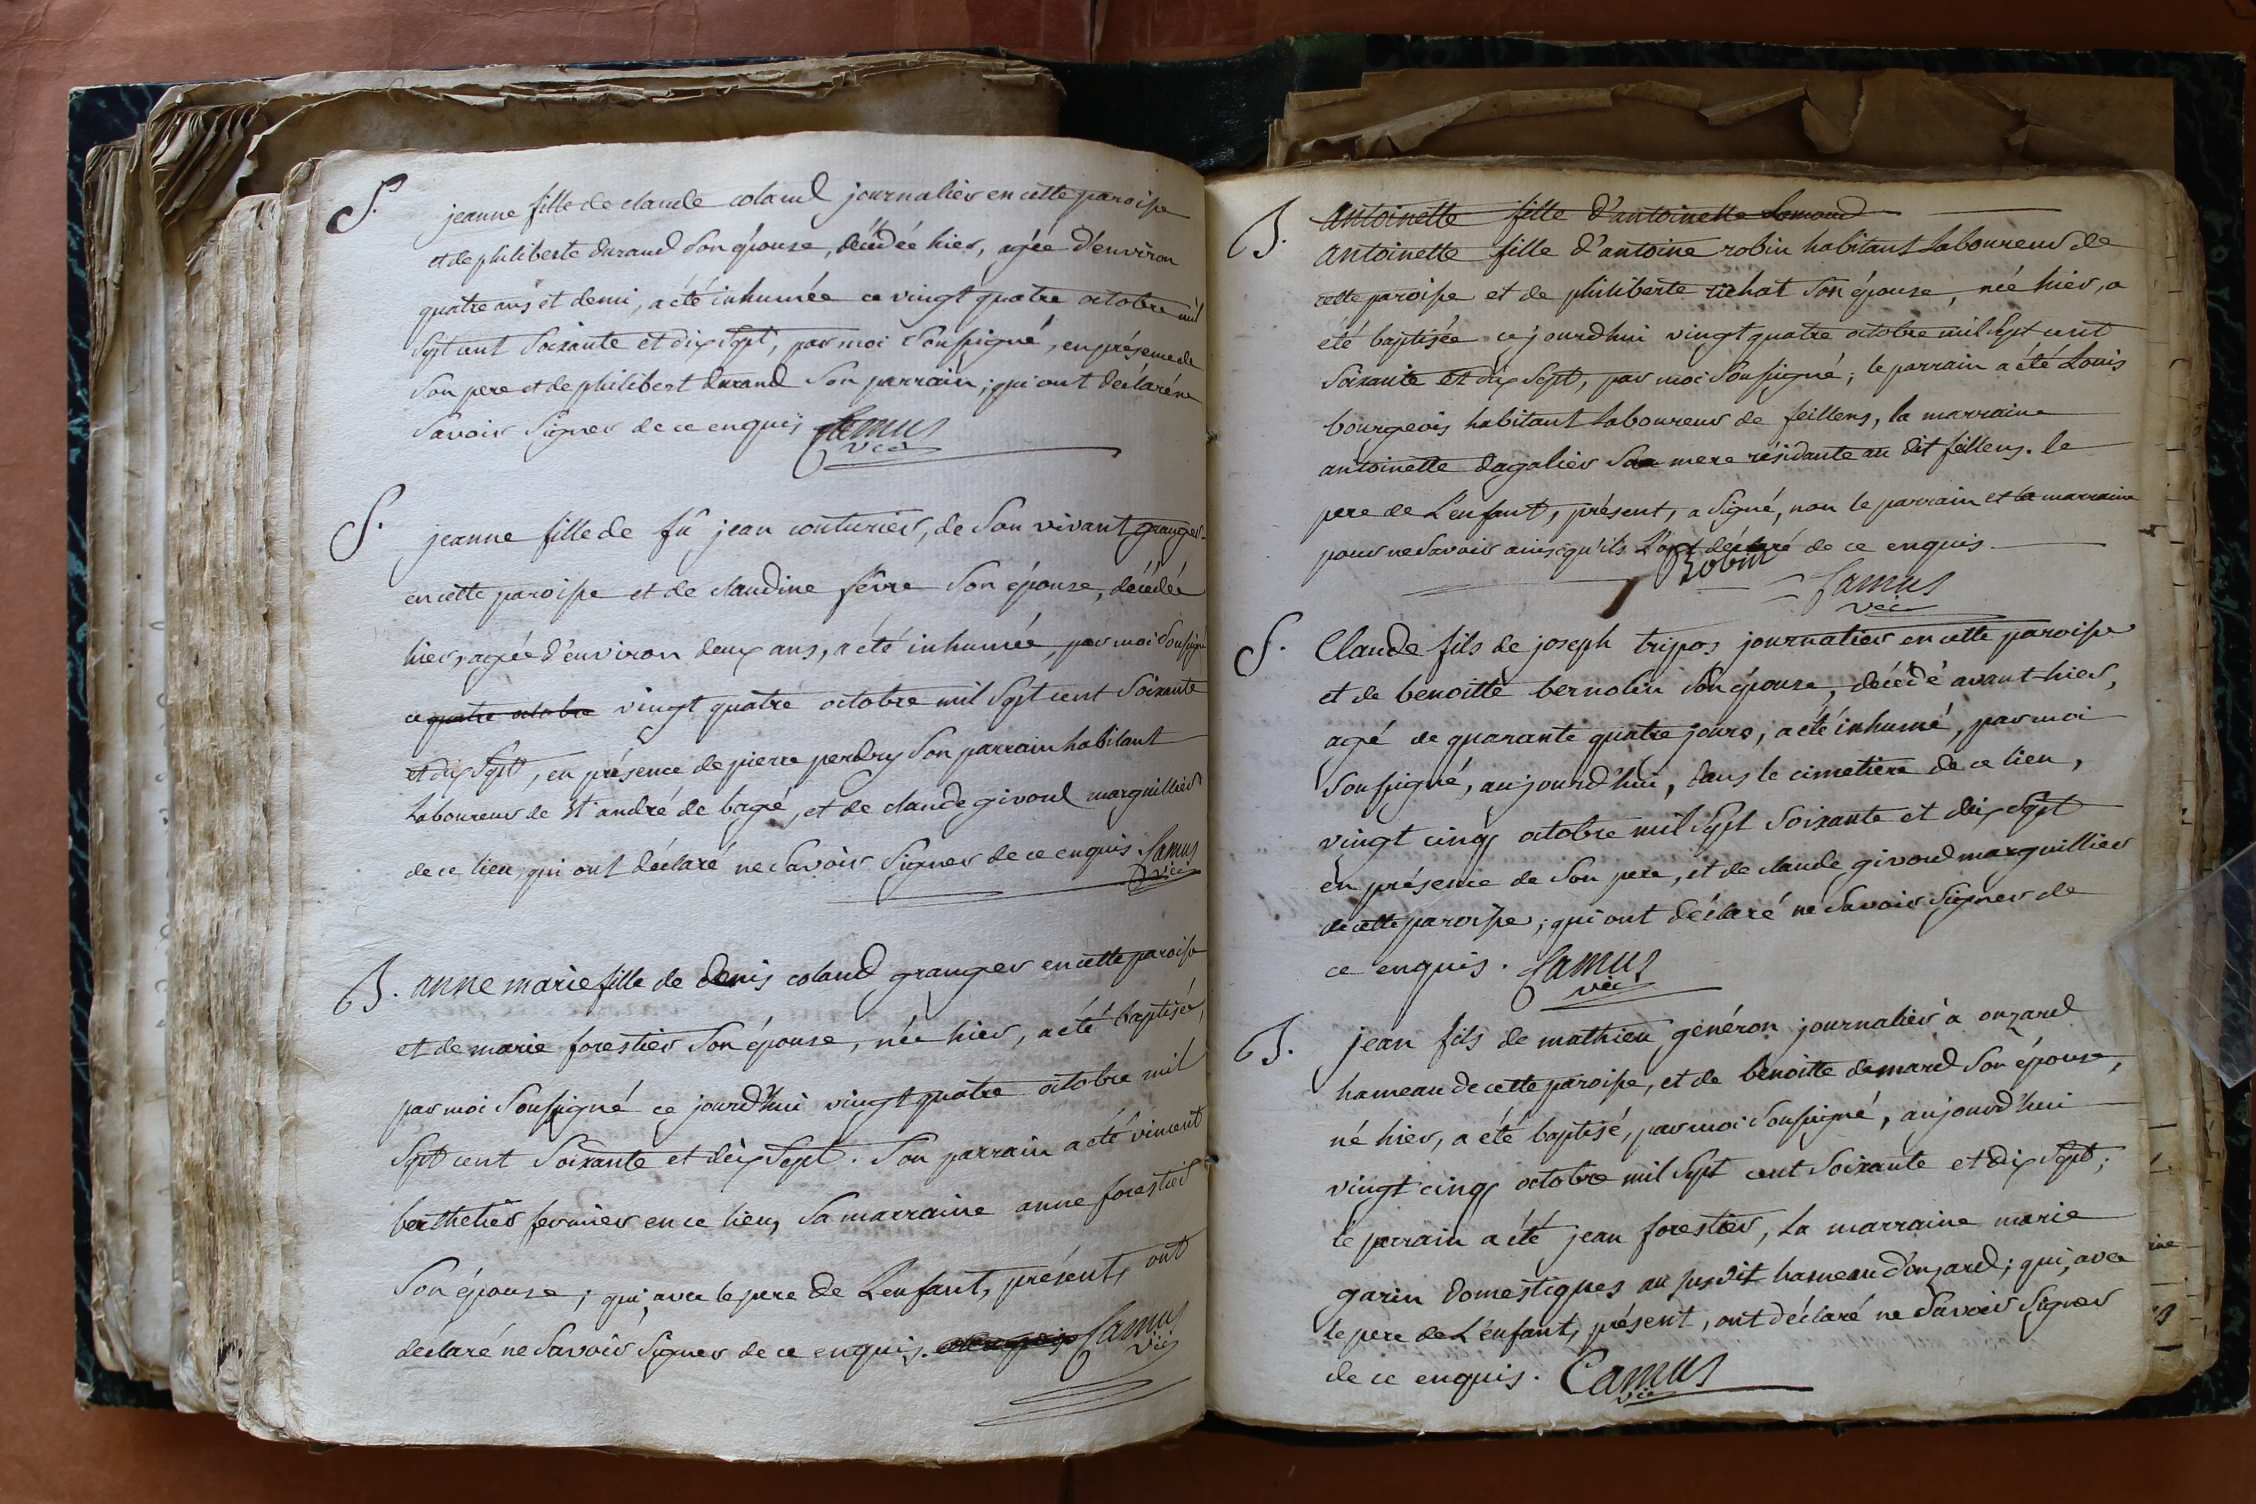 S. jeanne fille de claude coland journalier en cette paroisse
et de philiberte durand son épouse, décédée hier, agée d'environ
quatre ans et demi, a été inhumée ce vingt quatre octobre mil
sept cent soixante et dix sept, par moi soussigné, en présence de
son pere et de philibert durand son parrain; qui ont déclaré ne
savoir signer de ce enquis Camus
vic
S. jeanne fille de fû jean couturier, de son vivant granger
en cette paroisse et de claudine fèvre son épouse, décédée
hier, agée d'environ deux ans, a été inhumée, par moi soussigné
ce quatre octobre vingt quatre octobre mil sept cent soixante
et dix sept, en présence de pierre perdry son parrain habitant
laboureur de st andré de bagé, et de claude givord marguillier
de ce lieu, qui ont déclaré ne savoir signer de ce enquis. Camus
vic
B. anne marie fille de denis coland granger en cette paroisse
et de marie forestier son épouse, née hier, a été baptisée,
par moi soussigné ce jourd'hui vingt quatre octobre mil
sept cent soixante et dix sept. son parrain a été vincent
berthelier fermier en ce lieu, sa marraine anne forestier
son épouse; qui, avec le pere de l'enfant, présent, ont
déclaré ne savoir signer de ce enquis. Camus
vic
B. antoinette fille d'antoinette
antoinette fille d'antoine robin habitant laboureur de
cette paroisse et de philiberte richat son épouse, née hier, a
été baptisée ce jourdhui vingt quatre octobre mil sept cent
soixante et dix sept, par moi soussigné; le parrain a été Louis
bourgeois habitant laboureur de feillens, la marraine
antoinette dagalier sa mere résidante au dit feillens. le
pere de l'enfant, présent, a signé, non le parrain et la marraine
pour ne savoir ainsi qu'ils l'ont déclaré de ce enquis
Robin
Camus
vic
S. Claude fils de joseph tripoz journalier en cette paroisse
et de benoitte bernolin son épouse, décédé avant hier,
agé de quarante quatre jours, a été inhumé, par moi
soussigné, aujourd'hui, dans le cimetière de ce lieu,
vingt cinq octobre mil sept soixante et dix sept
en présence de son pere, et de claude givord marguillier
de cette paroisse; qui ont déclaré ne savoir signer de
ce enquis. Camus
vic
B. jean fils de mathieu généron journalier à onzard
hameau de cette paroisse, et de benoitte demard son épouse,
né hier, a été baptisé, par moi soussigné, aujourd'hui
vingt cinq octobre mil sept cent soixante et dix sept;
le parrain a été jean forestier, la marraine marie
garin domestiques au susdit hameau d'onzard; qui, avec
le pere de l'enfant, présent, ont déclaré ne savoir signer
de ce enquis. Camus
vic